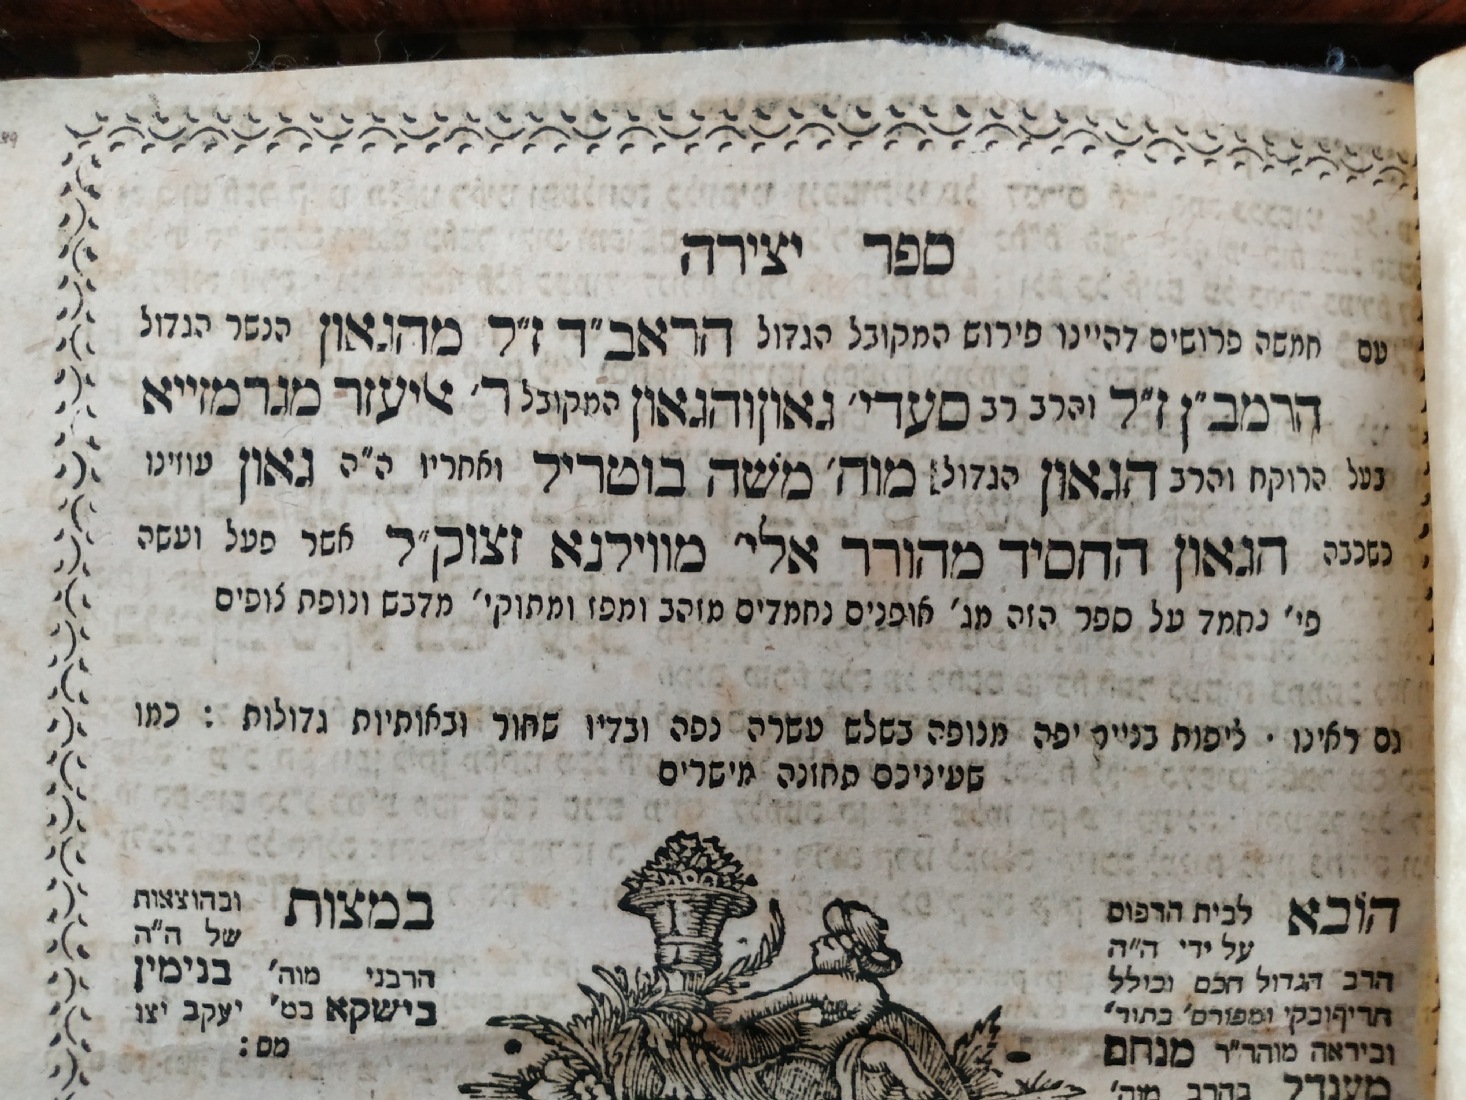 ספר יצירה
עם חמשה פרושים דהיינו פירוש המקובל הגדול הראב״ד ז״ל מהגאון הנשר הגדול
הרמב״ן ז״ל והרב רב סעדי׳ גאון והגאון המקובל ר׳ אליעזר מגרמזייא
בעל הרוקח והרב הגאון הגדול מוה׳ משה בוטריל ואחריו ה״ה גאון עוזינו
כשכבה הגאון החסיד מהורר אלי׳ מווילנא זצוק״ל אשר פעל ועשה
פי׳ נחמד על ספר הזה מג׳ אופנים נחמדים מזהב ומפז ומתוקי׳ מדבש ונופת צופים
גם ראינו · ליפות בנייר יפה מנופה בשלש עשרה נפה ובדיו שחור ובאותיות גדולות : כמו
שעיניכם תחזנה מישרים
הובא לבית הדפוס
על ידי ה״ה
הרב הגדול חכם וכולל
חריף ובקי ומפורס׳ בתור׳
וביראה מוהר״ר מנחם
מענדל בהרב מוה׳
במצות ובהוצאות
של ה״ה
הרבני מוה׳ בנימין
בישקא במ׳ יעקב יצו
מס :